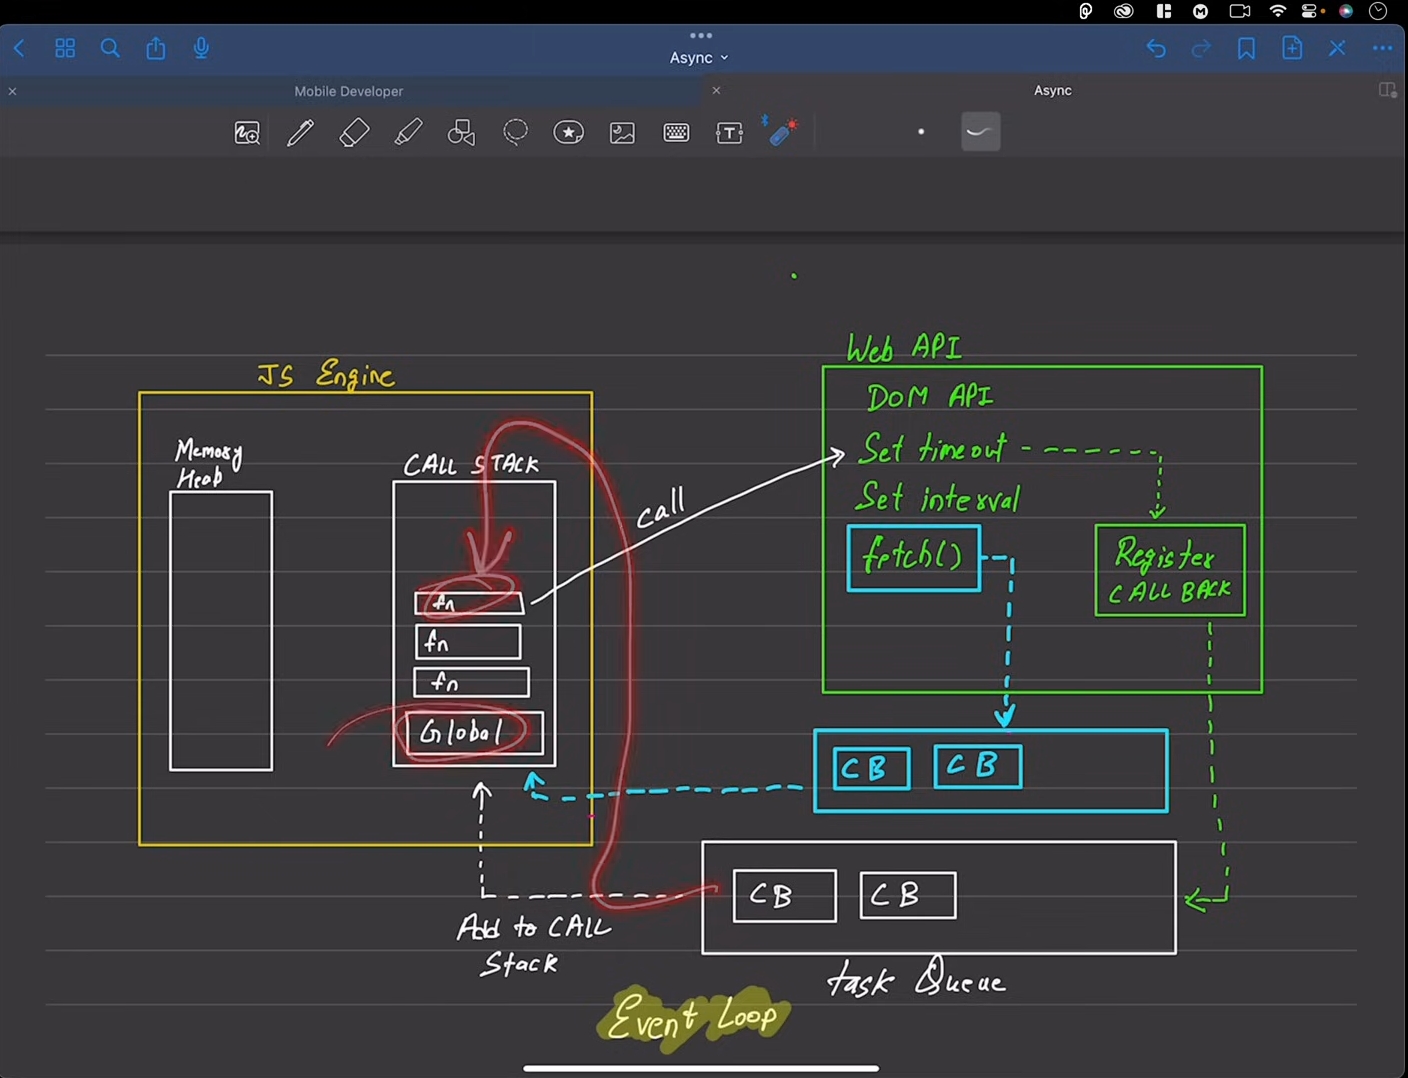 Async
Mobile Developer
Async
T
JS Engine
Memory
Heap
CALL STACK
fn
fn
fn
Global
call
Web API
DOM API
Set timeout
Set interval
fetch()
Register
CALL BACK
CB
CB
CB
CB
Add to CALL
Stack
task Queue
Event Loop